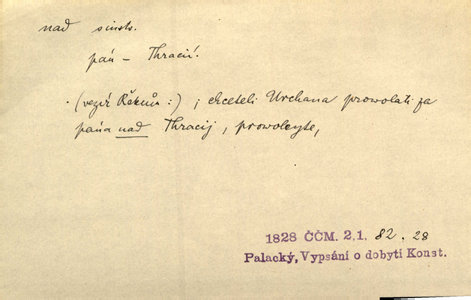 nad sinstr.
pán – Thracií.
(vezír Řekům:) ; chceteli Urchana prowolati za
pána nad Thracij, prowoleyte,
1828 ČČM. 2,1. 82. 28
Palacký, Vypsání o dobytí Konst.